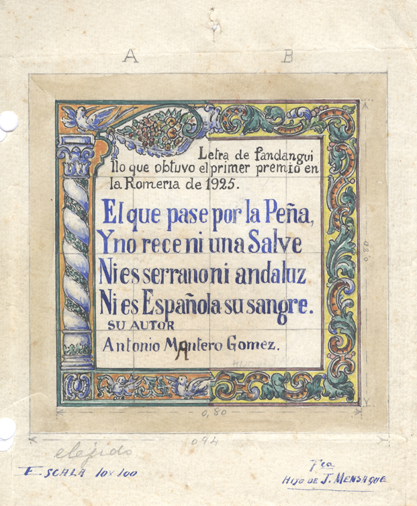 A B
Letra de fandangui
llo que obtuvo el primer premio en
la Romeria de 1925.
El que pase por la Peña,
Y no rece ni una Salve
Ni es serrano ni andaluz
Ni es Española su sangre.
SU AUTOR
Antonio Mantero Gomez.
0,80
0,80
0,94
elejido
ESCALA 10 x 100
Fco.
HIJO DE J. MENSAQUE